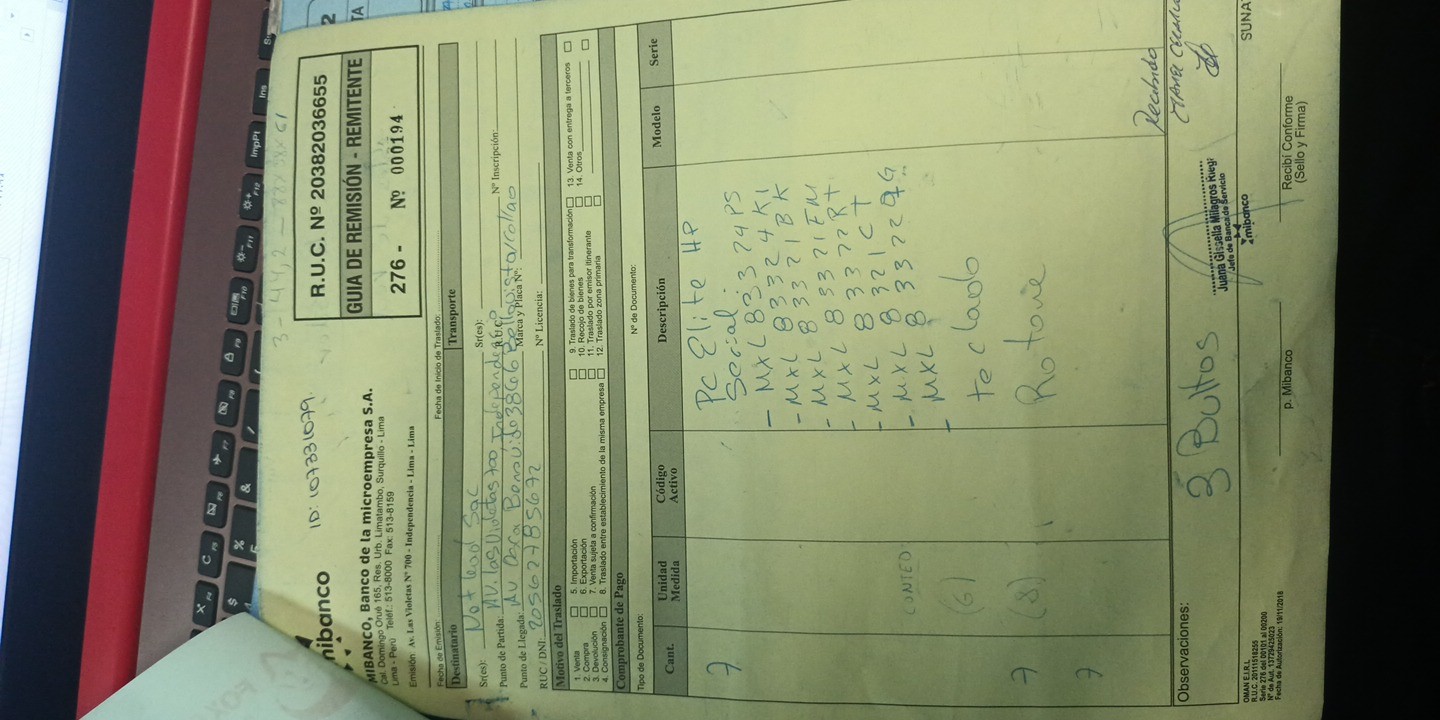 ID: 107331079.
3 - 44,2 - 88x38x61
mibanco
R.U.C. Nº 20382036655
GUIA DE REMISIÓN - REMITENTE
276 - Nº 000194
MIBANCO, Banco de la microempresa S.A.
Cal. Domingo Orué 165, Res. Urb. Limatambo, Surquillo - Lima
Lima - Perú Teléf.: 513-8000 Fax: 513-8159
Emisión: Av. Las Violetas Nº 700 - Independencia - Lima - Lima
Fecha de Emisión: Fecha de Inicio de Traslado:
Destinatario Transporte
Sr(es): Not lead Sac Sr(es):
Punto de Partida: Av. las Violetas 700 Independencia R.U.C. Nº Inscripción:
Punto de Llegada: Av Bellavista/callao Marca y Placa Nº:
RUC / DNI: 20562785672 Nº Licencia:
Motivo del Traslado
1. Venta 5. Importación 9. Traslado de bienes para transformación 13. Venta con entrega a terceros
2. Compra 6. Exportación 10. Recojo de bienes 14. Otros
3. Devolución 7. Venta sujeta a confirmación 11. Traslado por emisor itinerante
4. Consignación 8. Traslado entre establecimiento de la misma empresa 12. Traslado zona primaria
Comprobante de Pago
Tipo de Documento: Nº de Documento:
Cant. Unidad Medida Código Activo Descripción Modelo Serie
7 PC Elite HP
Serial:
- MXL 83324PS
- MXL 83324K1
- MXL 83321BK
- MXL 83321FM
- MXL 83322RT
- MXL 8321CT
- MXL 83322 9G
CONTEO
(6)
- teclado
7 (8) Rotowie
7
Recibido
Observaciones: 3 Bultos
Juana Gissella Milagros Kuegi
Jefe de Banca de Servicio
mibanco
p. Mibanco
Recibí Conforme
(Sello y Firma)
SUNA
OMAN E.I.R.L.
R.U.C. 20111518255
Serie 276 del 00101 al 00200
Nº de Aut. 1372943023
Fecha de Autorización: 19/11/2018